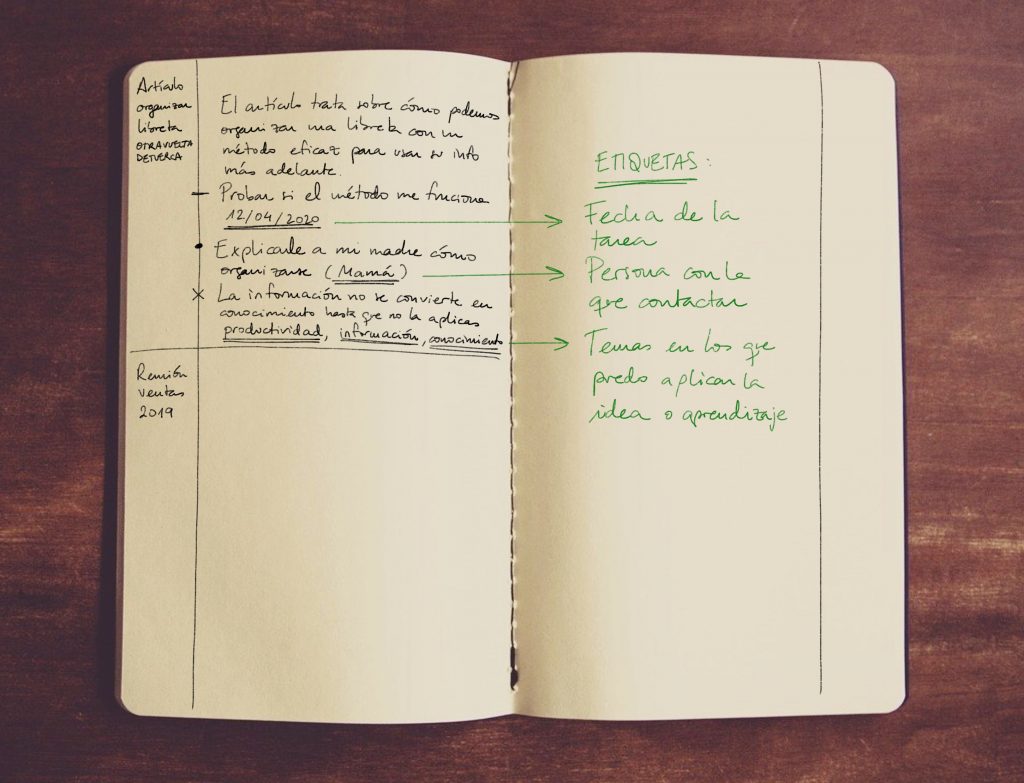 Artículo
organizar
libreta
OTRAVUELTA
DETUERCA
El artículo trata sobre cómo podemos
organizar una libreta con un
método eficaz para usar su info
más adelante.
— Probar si el método me funciona
12/04/2020
• Explicarle a mi madre cómo
organizarse (Mamá)
× La información no se convierte en
conocimiento hasta que no la aplicas
productividad, información, conocimiento
Reunión
ventas
2019
ETIQUETAS:
Fecha de la
tarea
Persona con la
que contactar
Temas en los que
puedo aplicar la
idea o aprendizaje